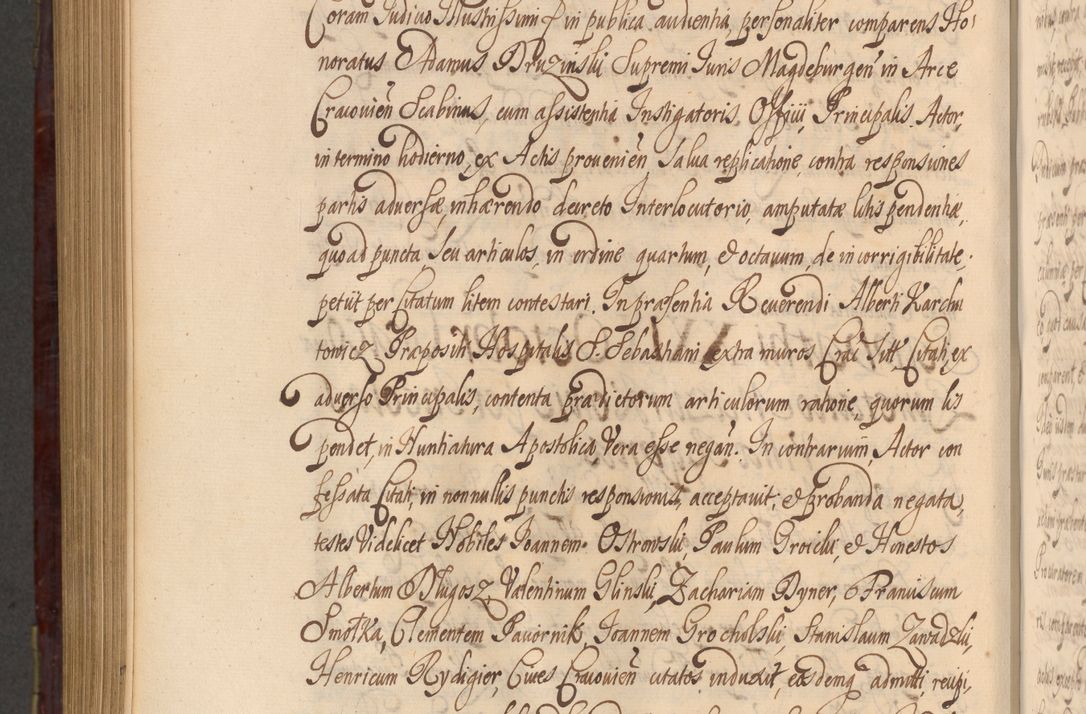 Coram Judicio Illustrissimi &c in publica audientia personaliter comparens Ho-
noratus Adamus Druzinski Supremi Juris Magdeburgen̄ in Arce
Cracovien̄ Scabinus, cum assistentia Instigatoris Officii, Principalis Actor,
in termino hodierno, ex Actis provenien̄, salva replicatione, contra responsiones
partis adversæ, inhærendo decreto Interlocutorio, amputatæ litis pendentiæ,
quoad puncta seu articulos, in ordine quartum, & octavum, de incorrigibilitate,
petiit per Citatum litem contestari. In præsentia Reverendi Alberti Karchu
towicz Præpositi Hospitalis S. Sebastiani extra muros, Crac̄ Citati, ex
adverso Principalis, contenta prædictorum articulorum ratione, quorum lis
pendet, in Nuntiatura Apostolica Vera esse negan̄. In contrarium, Actor con
fessata Citati, in nonnullis punctis responsionis, acceptavit, & probanda negata,
testes Videlicet Nobiles Joannem Ostrowski, Paulum Groicki, & Honestos
Albertum Długosz, Valentinum Glinski, Zachariam Dyner, Franciscum
Smotka, Clementem Pawornik, Joannem Grocholski, Stanislaum Zawadzki,
Henricum Rydigier, Cives Cracovien̄ citatos induxit, eosdemq admitti, recipi,